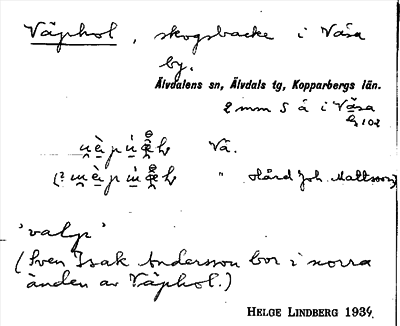 Väphol, skogsbacke i Våsa
by.
Älvdalens sn, Älvdals tg, Kopparbergs län.
2 mm S å i Våsa
Vå.
" Hård Joh. Mattsson)
'valp'
(Sven Isak Andersson bor i norra
änden av Väphol.)
HELGE LINDBERG 1934.